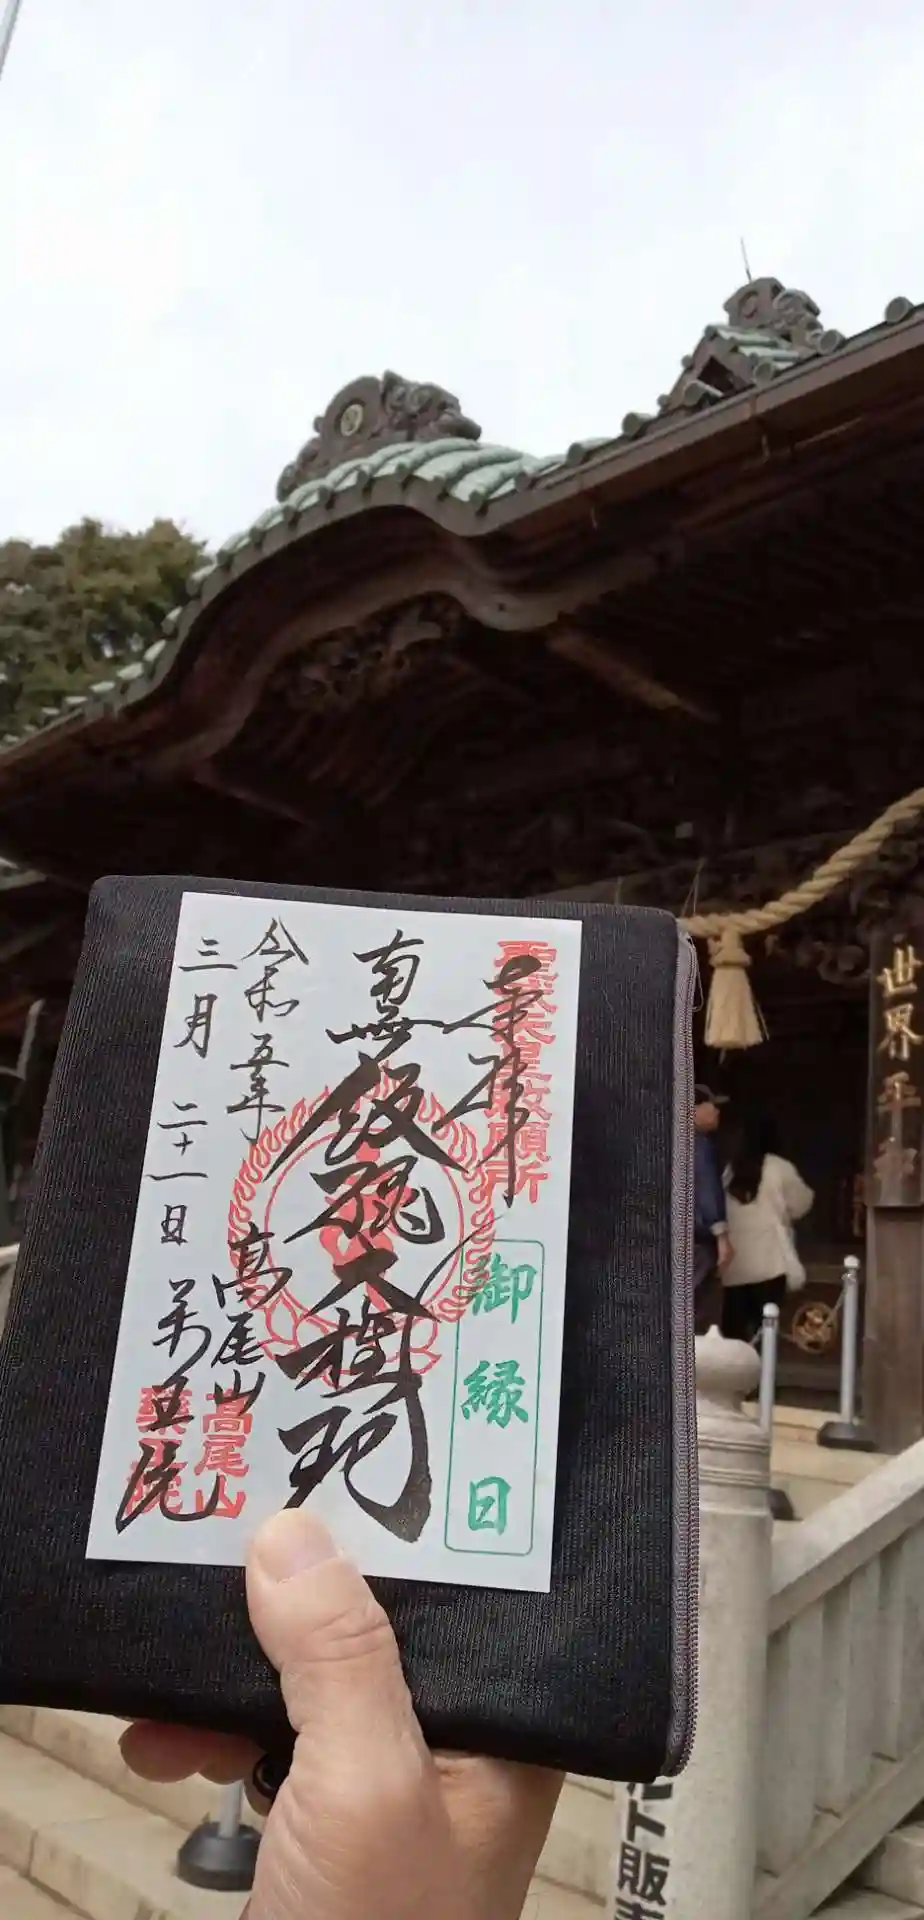 奉拝
聖武天皇敕願所
御縁日
南無飯縄大権現
令和五年
三月二十一日
高尾山
薬王院
高尾山
薬王院
世界平和
ト販売